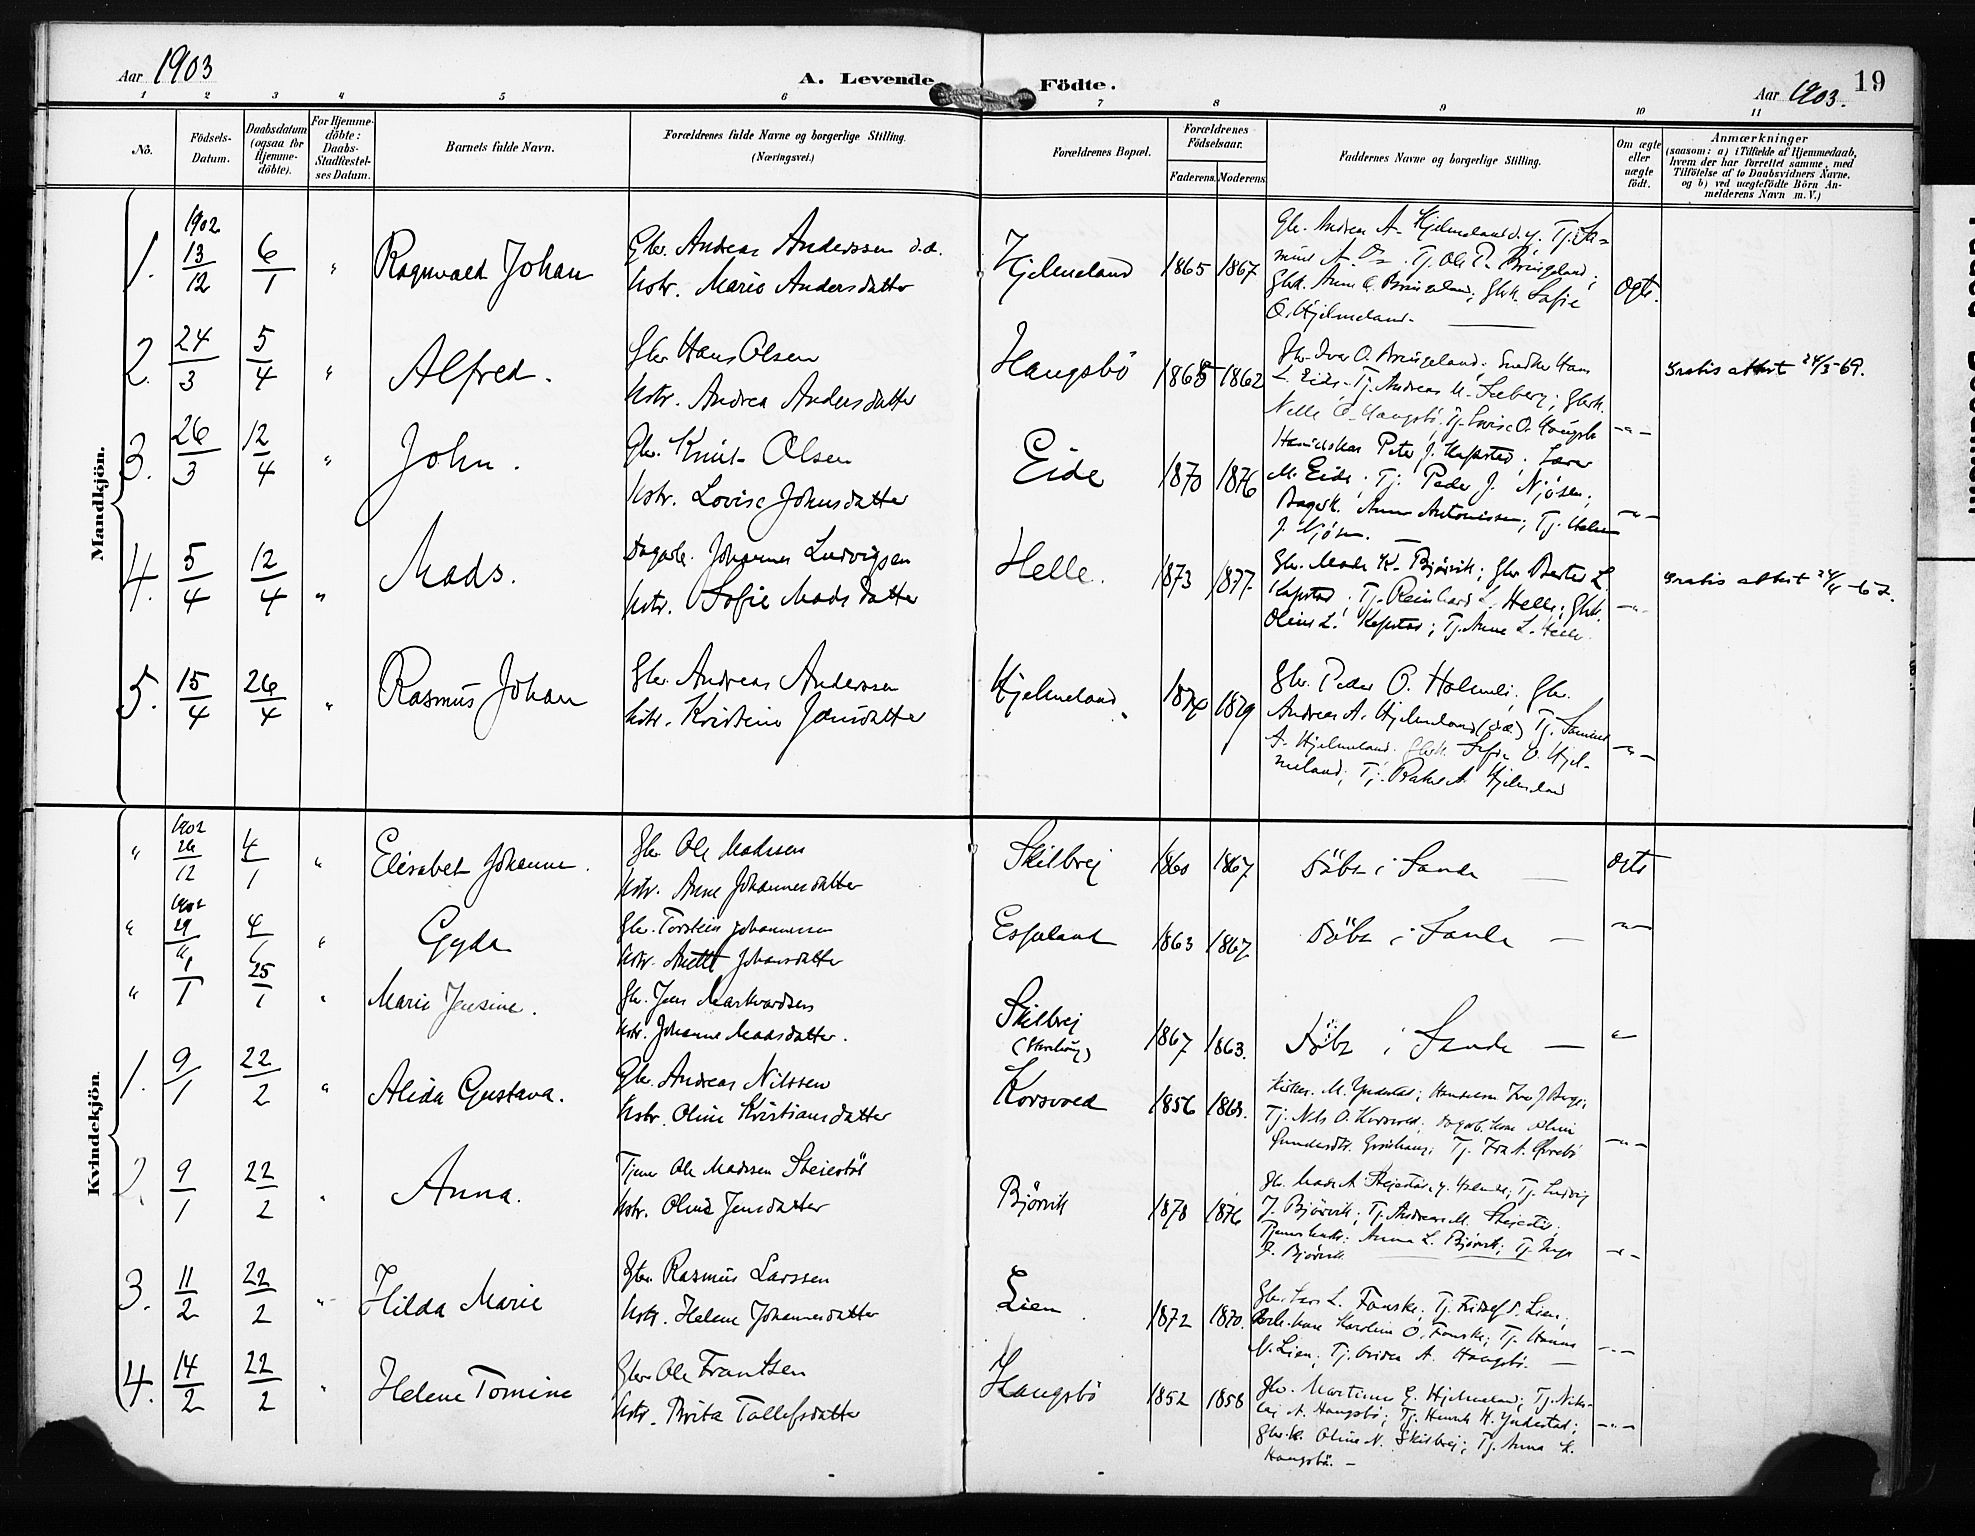 Aar 1903
A. Levende Födte.
Aar 1903.
19
1 2 3 4 5 6 7 8 9 10 11
Nö.
Födsels-
Datum.
Daabsdatum
(ogsaa for
Hjemme-
döbte).
For Hjemme-
döbte:
Daabs-
Stadfæstel-
ses Datum.
Barnets fulde Navn.
Forældrenes fulde Navne og borgerlige Stilling.
(Næringsvei.)
Forældrenes Bopæl.
Forældrenes
Födselsaar.
Faderens. Moderens.
Faddernes Navne og borgerlige Stilling.
Om ægte
eller
uægte
födt.
Anmærkninger
(saasom: a) i Tilfælde af Hjemmedaab,
hvem der har forrettet samme, med
Tilföielse af to Daabsvidners Navne,
og b) ved uægtefödte Börn An-
melderens Navn m. V.)
Mandkjön.
1. 1902 13/12 6/1 " Ragnvald Johan
Gbr. Andreas Anderssen d.æ.
Kstr. Marie Andersdatter
Hjelmeland 1865 1867
Gbr. Andreas A. Hjelmeland d.y. Tj.
Tj. Ole P. Bringeland;
Gbk. Anne Bringeland; Gbk. Sofie
O. Hjelmeland.
Ogte.
2. 24/3 5/4 " Alfred.
Gbr Hans Olsen
Kstr. Andrea Andersdatter
Haugsbö 1865 1862
Gbr. Ivar O. Bringeland; Snedker Hans
L. Eide. Tj. Andreas M. Seeberg; Gbrk.
Nelle O. Haugsbö. Tj. Lovise O. Haugsbö
-"-
Gratis attest 24/3-69.
3. 26/3 12/4 " John.
Gbr. Knut Olsen
Kstr. Lovise Johnsdatter
Eide 1870 1876
Peter J. Kapstad; Lærer
M. Eide. Tj. Peder J. Njøsen;
Bagerk. Anna Antonissen; Tj. Helene
J. Njøsen.
-"-
4. 5/4 12/4 " Mads.
Dagarb. Johannes Ludvigsen
Kstr. Sofie Madsdatter
Helle. 1873 1877.
Gbr. Mads K. Bjørvik; Gbr
Kapstad; Tj. Reinhard L. Helle; Gbrk.
Oline L. Kapstad; Tj. Anne L. Helle.
-"-
Gratis attest
5. 15/4 26/4 " Rasmus Johan
Gbr. Andreas Anderssen
Kstr. Kristine Jensdatter
Hjelmeland 1874 1879
Gbr. Peder O. Holmeli; Gbr.
Andreas A. Hjelmeland (d.æ.) Tj.
A. Hjelmeland. Gbrk. Sofie O. Hjel-
meland; Tj. Rakel A. Hjelmeland
-"-
Kvindekjön.
" 1902 26/12 4/1 " Elisabet Johanne.
Gbr. Ole Madssen
Kstr. Anne Johannesdatter
Skilbrej 1860 1867.
Döbt i Sande — Ogte
" 1902 4/1 " Gyda
Gbr. Torstein Johannessen
Kstr. Anette Johansdatter
Espeland 1863 1867
Döbt i Sande — -"-
" 1/1 25/1 " Marie Jensine.
Gbr. Jens Markvardsen
Kstr. Johanne Madsdatter.
Skilbrej
1867 1863.
Döbt i Sande — "
1. 9/1 22/2 " Alida Gustava.
Gbr. Andreas Nilssen
Kstr. Oline Kristiansdatter
Korsvold 1856 1863.
M. Yndestad;
Tj. Nils O. Korsvold;
-"-
2. 9/1 22/2 " Anna.
Tjener Ole Madssen Steiestöl
Kstr. Oline Jensdatter
Bjørvik 1878 1876
Gbr. Mads A. Tj. Ludvig
J. Bjørvik; Tj. Andreas M.
Anna L. Bjørvik; Tj. Inga
J. Bjørvik
-"-
3. 11/2 22/2 " Hilda Marie
Gbr. Rasmus Larssen
Kstr. Helene Johannesdatter
Lien 1872 1870.
Gbr. Lars L. Fauske; Tj. Lien;
Karoline O. Fauske; Tj. Hanna
N. Lien; Tj. A. Haugsbö. —
-"-
4. 14/2 22/2 " Helene Tomine
Gbr. Ole Frantsen
Kstr. Brita Tollefsdatter
Haugsbö 1852 1858
Gbr. Martinus E. Hjelmeland; Tj. Niko-
lai A. Haugsbö; Tj. Henrik H. Yndestad;
Gbr.k. Oline N. Skilbrej; Tj. Anna K.
Haugsbö. —
-"-